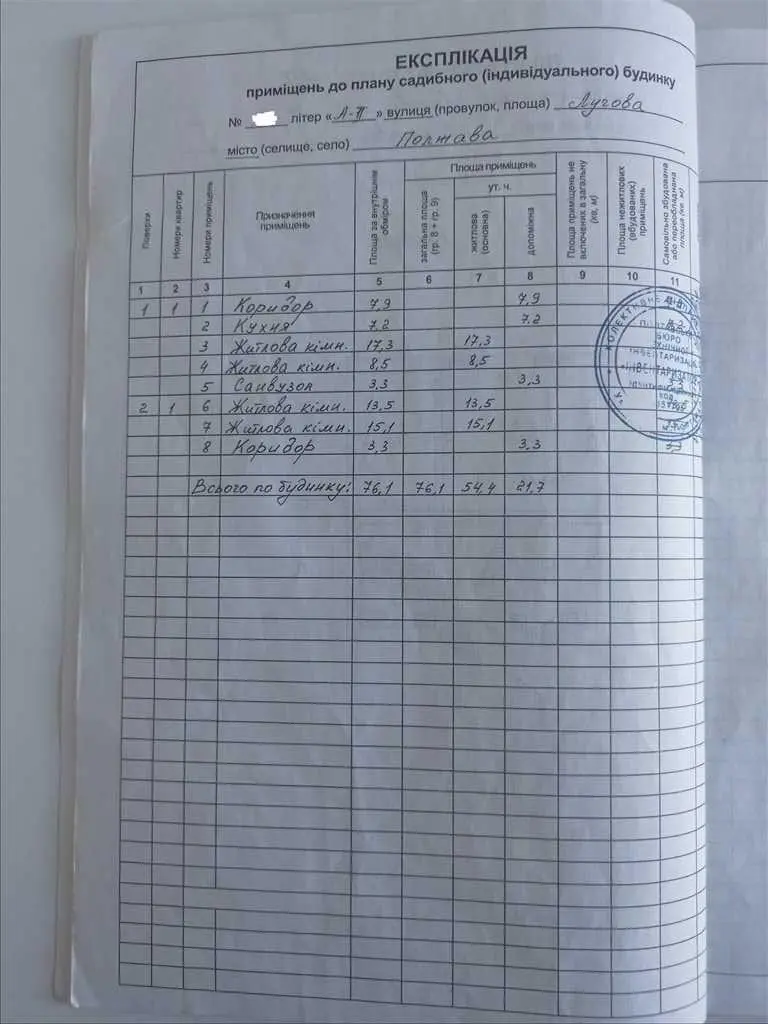 ЕКСПЛІКАЦІЯ
приміщень до плану садибного (індивідуального) будинку
№ літер «А-П» вулиця (провулок, площа) Лугова
місто (селище, село) Полтава
Поверхи Номери квартир Номери приміщень Призначення приміщень Площа за внутрішнім обміром Площа приміщень загальна площа (гр. 8 + гр. 9) у т. ч. житлова (основна) допоміжна Площа приміщень не включених в загальну (кв, м) Площа нежитлових (вбудованих) приміщень Самовільно збудована або переобладнана площа (кв. м)
1 2 3 4 5 6 7 8 9 10 11
1 1 1 Коридор 7,9 7,9
2 Кухня 7,2 7,2
3 Житлова кімн. 17,3 17,3
4 Житлова кімн. 8,5 8,5
5 Санвузол 3,3 3,3 3,3
2 1 6 Житлова кімн. 13,5 13,5
7 Житлова кімн. 15,1 15,1
8 Коридор 3,3 3,3 3,3
Всього по будинку: 76,1 76,1 54,4 21,7
БЮРО
ТЕХНІЧНОЇ
ІНВЕНТАРИЗАЦІЇ
«ІНВЕНТАРИЗАТОР»
КОД